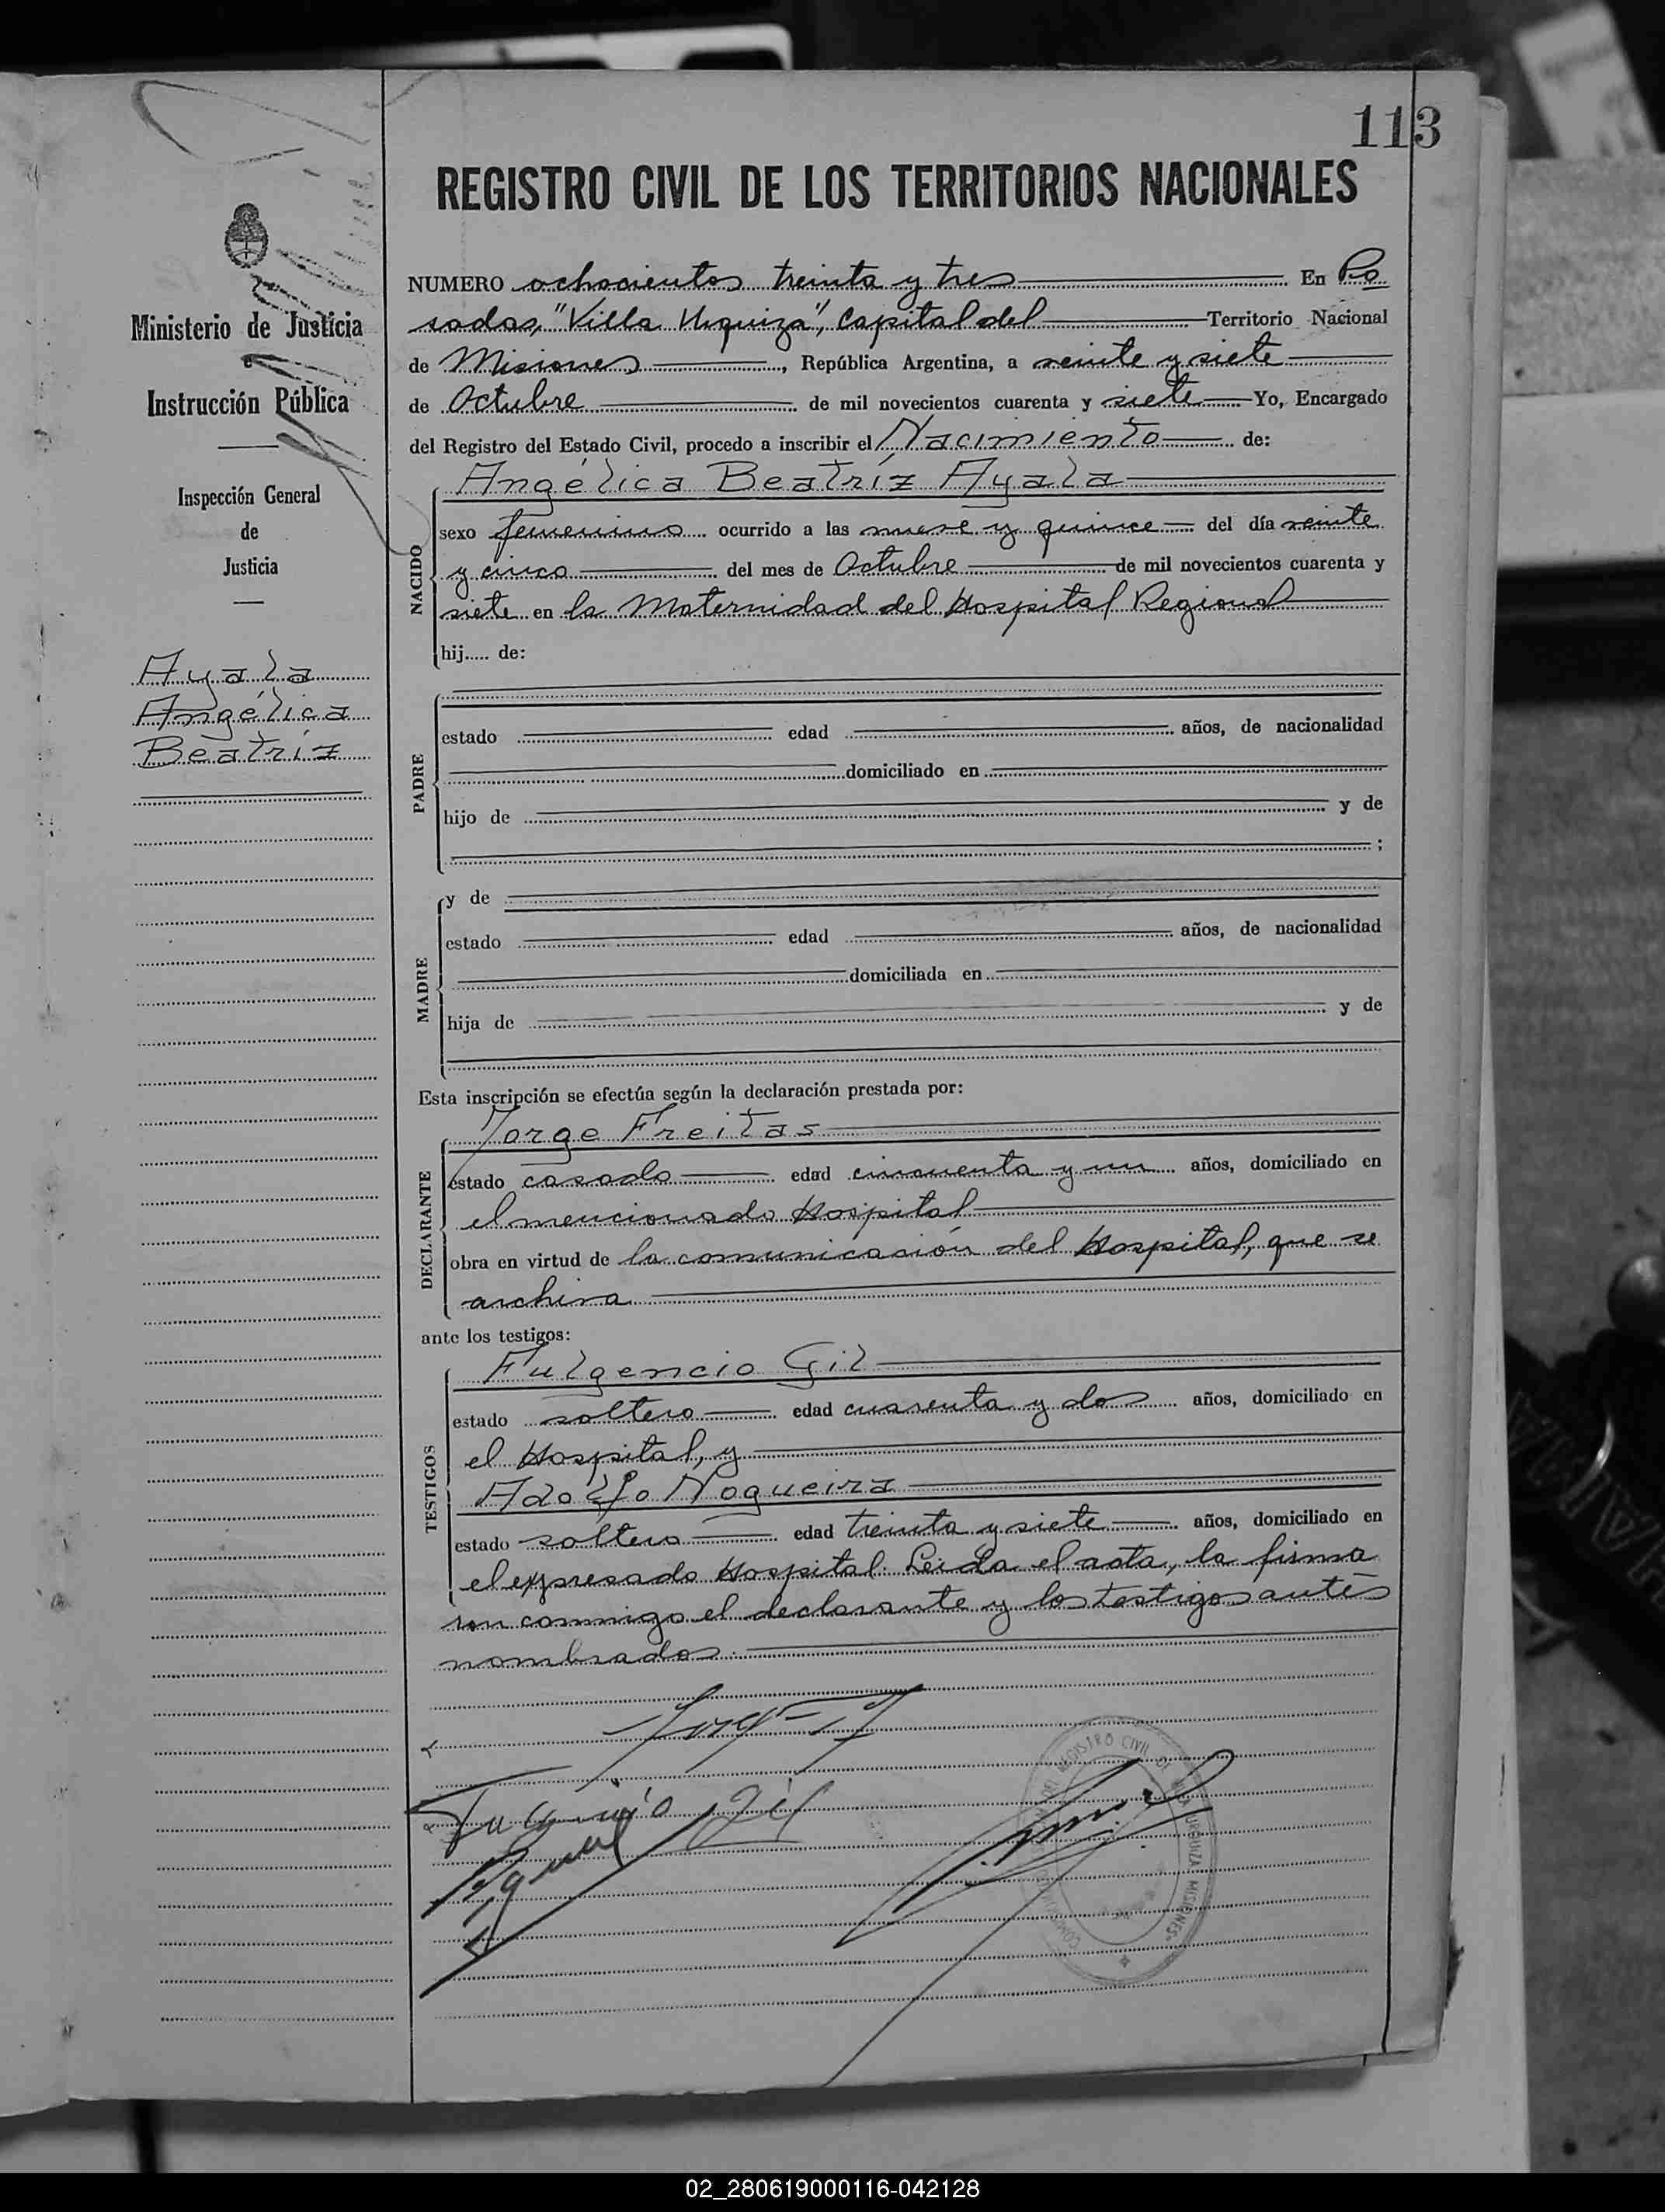 113
REGISTRO CIVIL DE LOS TERRITORIOS NACIONALES
Ministerio de Justicia
e
Instrucción Pública
Inspección General
de
Justicia
Ayala
Angélica
Beatríz
NUMERO ochocientos treinta y tres En Po
sadas, "Villa Urquiza", Capital del Territorio Nacional
de Misiones, República Argentina, a veinte y siete
de Octubre de mil novecientos cuarenta y siete Yo, Encargado
del Registro del Estado Civil, procedo a inscribir el Nacimiento de:
NACIDO
Angélica Beatríz Ayala
sexo femenino ocurrido a las nueve y quince del día veinte
y cinco del mes de Octubre de mil novecientos cuarenta y
siete en la Maternidad del Hospital Regional
hij..... de:
PADRE
estado edad años, de nacionalidad
domiciliado en
hijo de y de
;
MADRE
y de
estado edad años, de nacionalidad
domiciliada en
hija de y de
Esta inscripción se efectúa según la declaración prestada por:
DECLARANTE
Jorge Freitas
estado casado edad cincuenta y un años, domiciliado en
el mencionado Hospital
obra en virtud de la comunicación del Hospital, que se
archiva
ante los testigos:
TESTIGOS
Fulgencio Gil
estado soltero edad cuarenta y dos años, domiciliado en
el Hospital, y
Adolfo Nogueira
estado soltero edad treinta y siete años, domiciliado en
el expresado Hospital. Leida el acta, la firma
ron conmigo el declarante y los testigos antes
nombrados.
REGISTRO CIVIL DE VILLA URQUIZA MISIONES
02_280619000116-042128